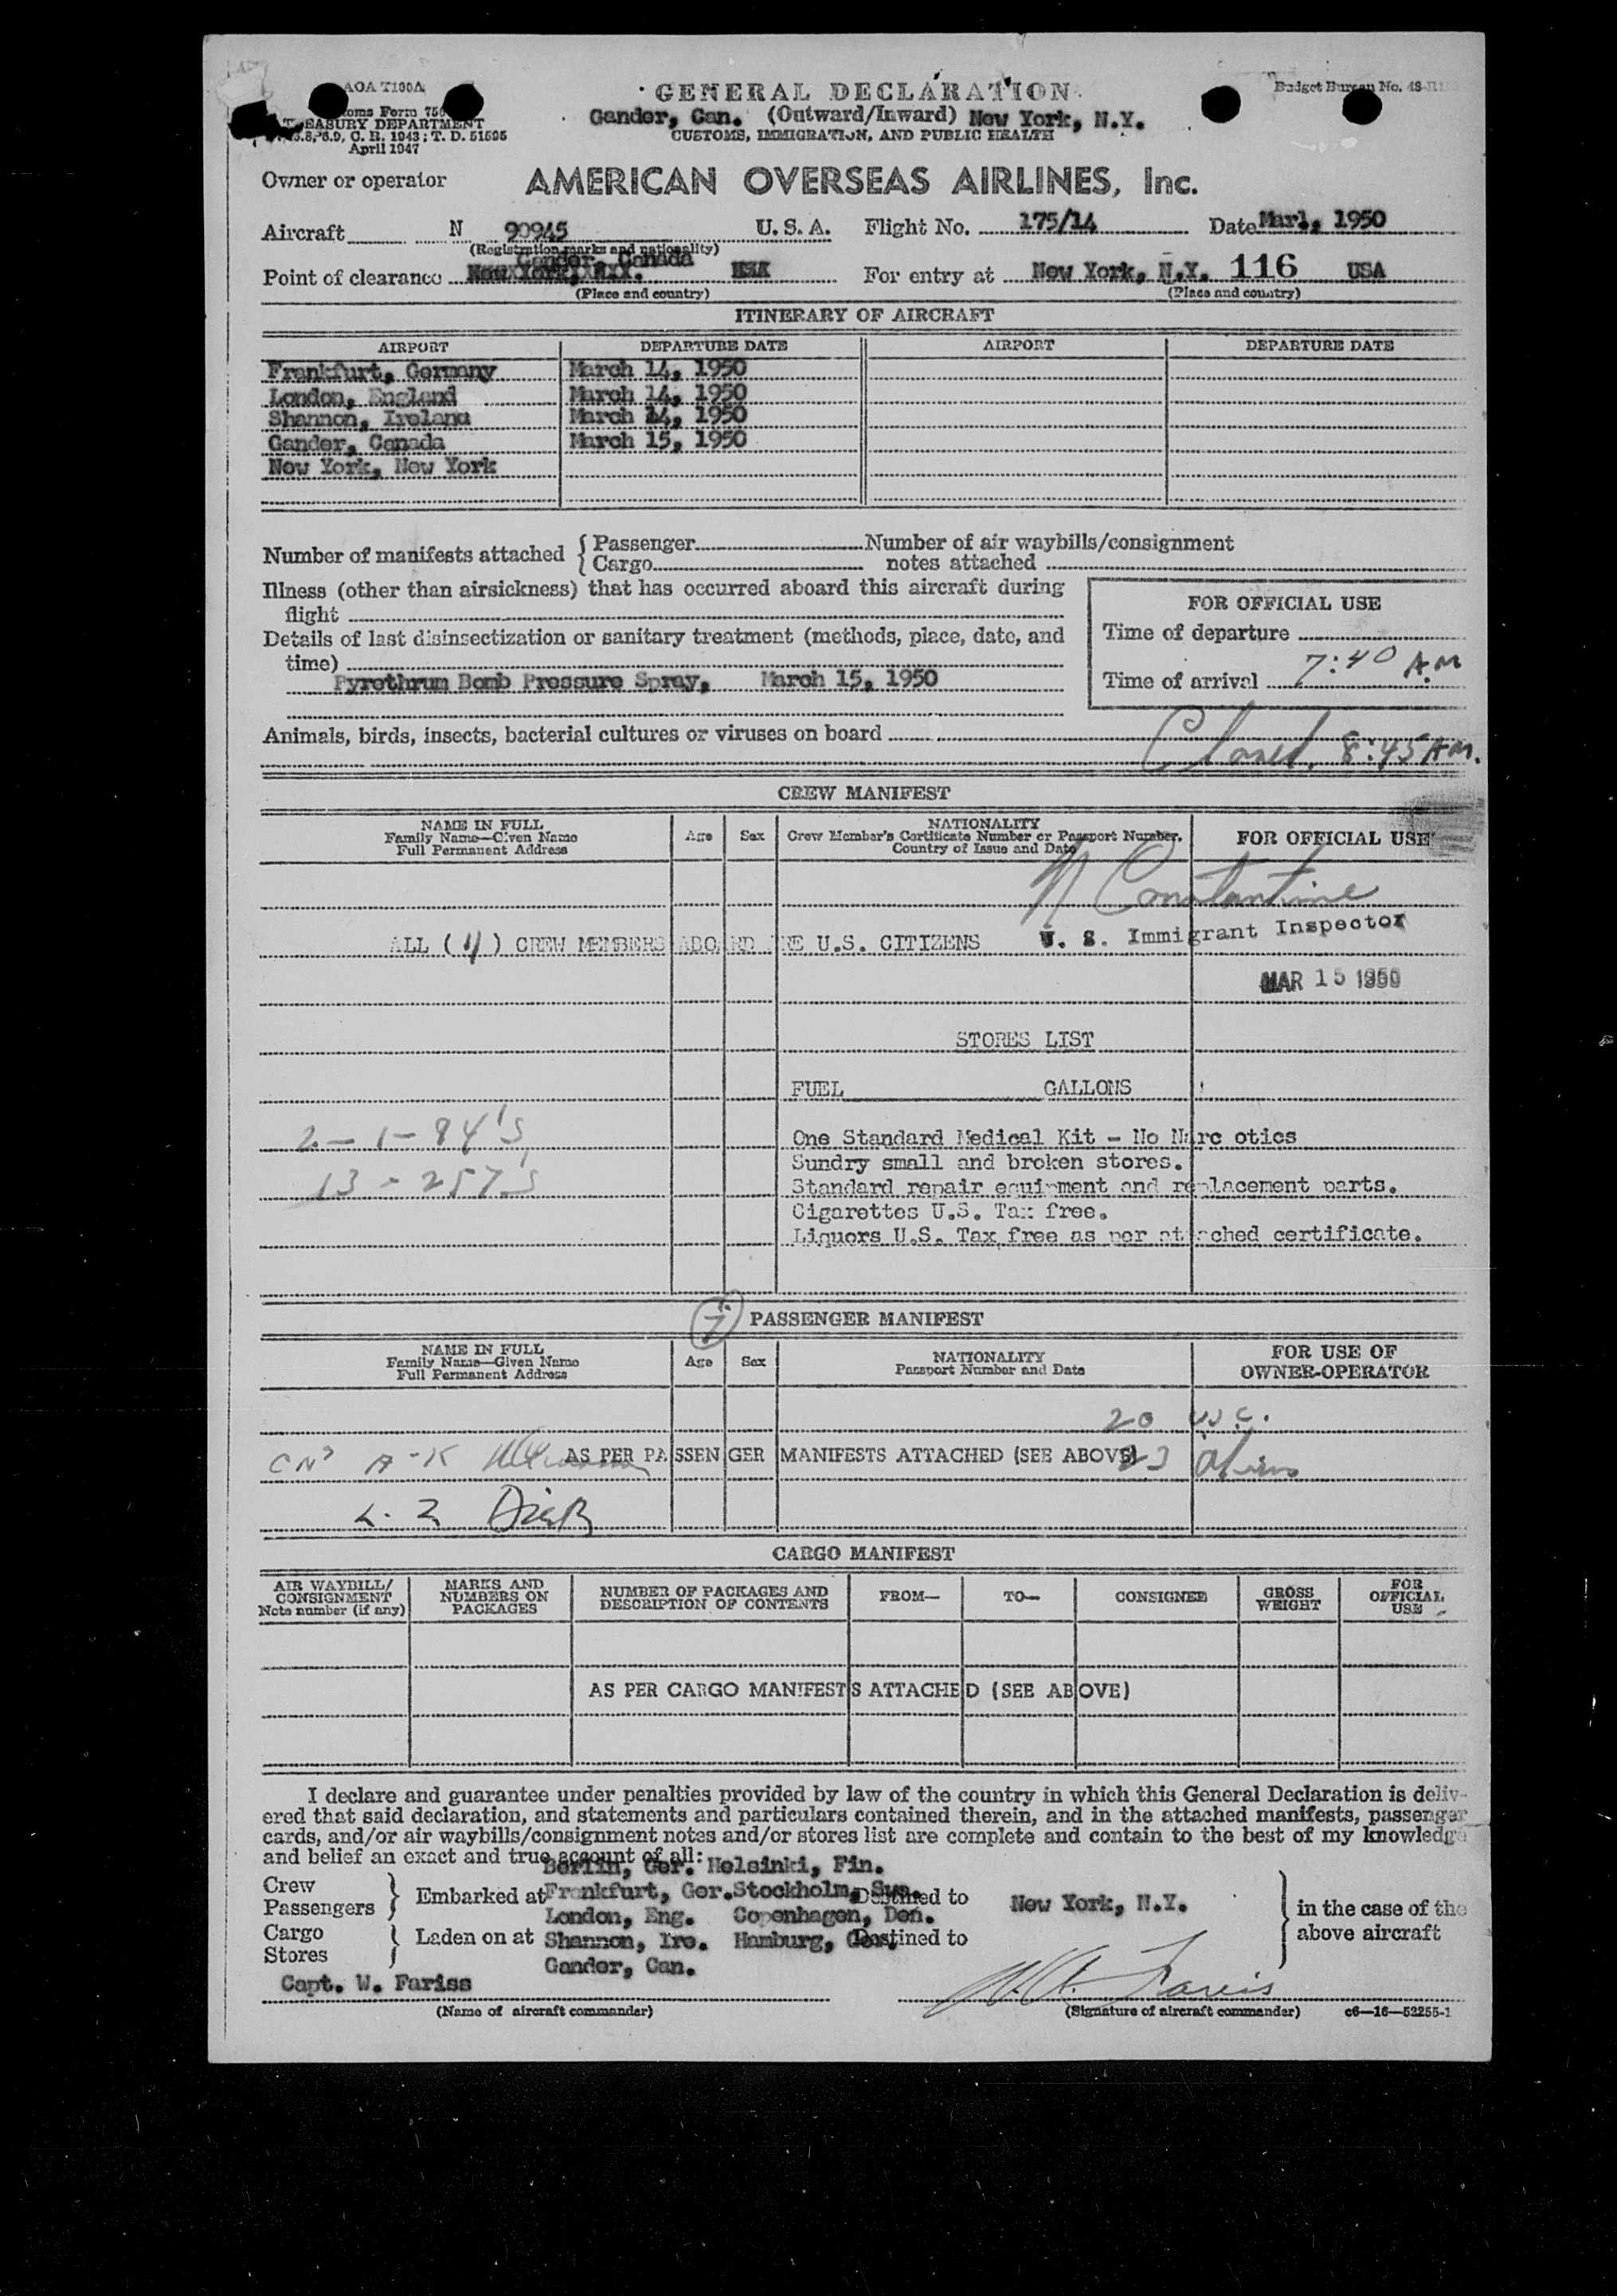 AOA T100A
GENERAL DECLARATION
Budget Bureau No. 48-R
Customs Form 750
Gander, Can. (Outward/Inward) New York, N.Y.
TREASURY DEPARTMENT
CUSTOMS, IMMIGRATION, AND PUBLIC HEALTH
C. R. 1943; T. D. 51595
April 1947
Owner or operator AMERICAN OVERSEAS AIRLINES, Inc.
Aircraft N 90945 U. S. A. Flight No. 175/14 Date Mar1., 1950
(Registration marks and nationality)
Gander, Canada
Point of clearance New York, N.Y. USA For entry at New York, N.Y. 116 USA
(Place and country) (Place and country)
ITINERARY OF AIRCRAFT
AIRPORT DEPARTURE DATE AIRPORT DEPARTURE DATE
Frankfurt, Germany March 14, 1950
London, England March 14, 1950
Shannon, Ireland March 14, 1950
Gander, Canada March 15, 1950
New York, New York
Number of manifests attached { Passenger Number of air waybills/consignment
Cargo notes attached
Illness (other than airsickness) that has occurred aboard this aircraft during
flight
FOR OFFICIAL USE
Details of last disinsectization or sanitary treatment (methods, place, date, and
time)
Time of departure
Pyrethrum Bomb Pressure Spray, March 15, 1950
Time of arrival 7:40 AM
Animals, birds, insects, bacterial cultures or viruses on board
8:45 AM.
CREW MANIFEST
NAME IN FULL
Family Name—Given Name
Full Permanent Address
Age Sex
NATIONALITY
Crew Member's Certificate Number or Passport Number,
Country of Issue and Date
FOR OFFICIAL USE
N Constantine
ALL ( 11 ) CREW MEMBERS ABOARD ARE U.S. CITIZENS U. S. Immigrant Inspector
MAR 15 1950
STORES LIST
FUEL GALLONS
2 - 1 - 94's One Standard Medical Kit - No Narc otics
Sundry small and broken stores.
13 - 257's Standard repair equipment and replacement parts.
Cigarettes U.S. Tax free.
Liquors U.S. Tax free as per attached certificate.
7 PASSENGER MANIFEST
NAME IN FULL
Family Name—Given Name
Full Permanent Address
Age Sex
NATIONALITY
Passport Number and Date
FOR USE OF
OWNER-OPERATOR
20 USC.
A-K AS PER PASSENGER MANIFESTS ATTACHED (SEE ABOVE) 23
L. Z
CARGO MANIFEST
AIR WAYBILL/
CONSIGNMENT
Note number (if any)
MARKS AND
NUMBERS ON
PACKAGES
NUMBER OF PACKAGES AND
DESCRIPTION OF CONTENTS
FROM— TO— CONSIGNEE
GROSS
WEIGHT
FOR
OFFICIAL
USE
AS PER CARGO MANIFESTS ATTACHED (SEE ABOVE)
I declare and guarantee under penalties provided by law of the country in which this General Declaration is deliv-
ered that said declaration, and statements and particulars contained therein, and in the attached manifests, passenger
cards, and/or air waybills/consignment notes and/or stores list are complete and contain to the best of my knowledge
and belief an exact and true account of all:
Berlin, Ger. Helsinki, Fin.
Crew
Passengers } Embarked at Frankfurt, Ger. Stockholm, Swe. Destined to New York, N.Y. } in the case of the
London, Eng. Copenhagen, Den.
Cargo
Stores } Laden on at Shannon, Ire. Hamburg, Ger. Destined to above aircraft
Gander, Can.
Capt. W. Fariss W. A. Fariss
(Name of aircraft commander) (Signature of aircraft commander) c6—16—52255-1